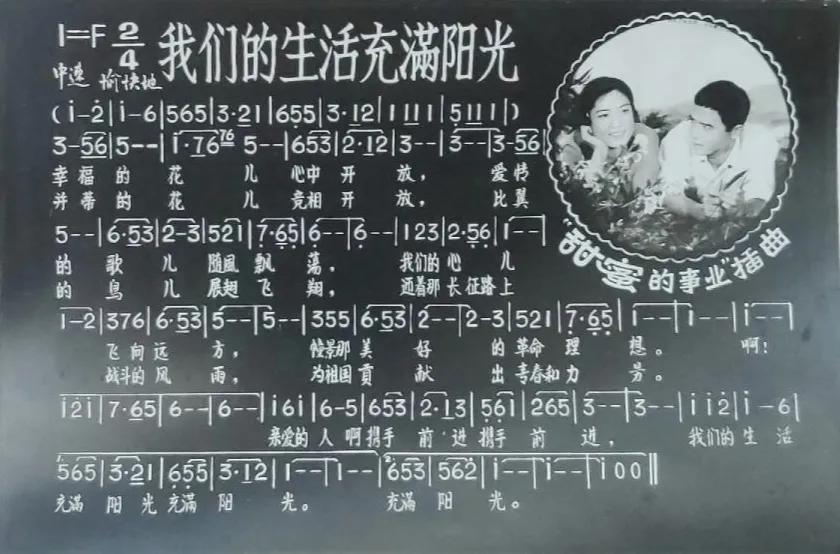 1=F 2/4 我们的生活充满阳光
中速 愉快地
(i-2|i-6|565|3·21|655|3·12|1111|5111|)
3-56|5--|i·7676 5--|653|2·12|3--|3--|3-56|
幸福的花儿心中开放，爱情
并蒂的花儿竞相开放，比翼
5--|6·53|2-3|521|7·65|6--|6--|123|2·56|1--|
的歌儿随風飘荡，我们的心儿
的鸟儿展翅飞翔，迎着那长征路上
"甜蜜的事业"插曲
1-2|376|6·53|5--|5--|355|6·53|2--|2-3|521|7·65|1--|1--|i--|
飞向远方，憧景那美好的革命理想。啊！
战斗的风雨，为祖国貢献出青春和力另。
i2i|7·65|6--|6--|i6i|6-5|653|2·13|561|265|3--|3--|ii2|i-6|
亲爱的人啊携手前进携手前进，我们的生活
565|3·21|655|3·12|1--|1--|653|562|i--|i--|i00‖
充滿阳光充滿阳光。充滿阳光。